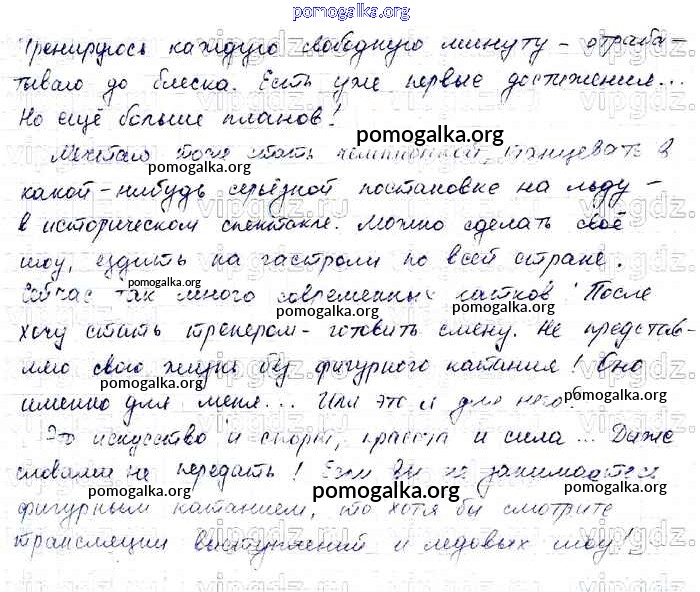 pomogalka.org
Тренируюсь каждую свободную минуту – отраба-
тываю до блеска. Есть уже первые достижения...
Но ещё больше планов!
pomogalka.org
Мечтаю тоже стать чемпионкой, танцевать в
pomogalka.org
какой-нибудь серьёзной постановке на льду –
в историческом спектакле. Можно сделать своё
шоу, ездить на гастроли по всей стране.
pomogalka.org
Сейчас так много современных катков! После
pomogalka.org
хочу стать тренером – готовить смену. Не представ-
ляю свою жизнь без фигурного катания! Оно
pomogalka.org
именно для меня... Или это я для него?
pomogalka.org
Это искусство и спорт, красота и сила... Даже
словами не передать! Если вы не занимаетесь
pomogalka.org pomogalka.org pomogalka.org
фигурным катанием, то хотя бы смотрите
трансляции выступлений и ледовых шоу!